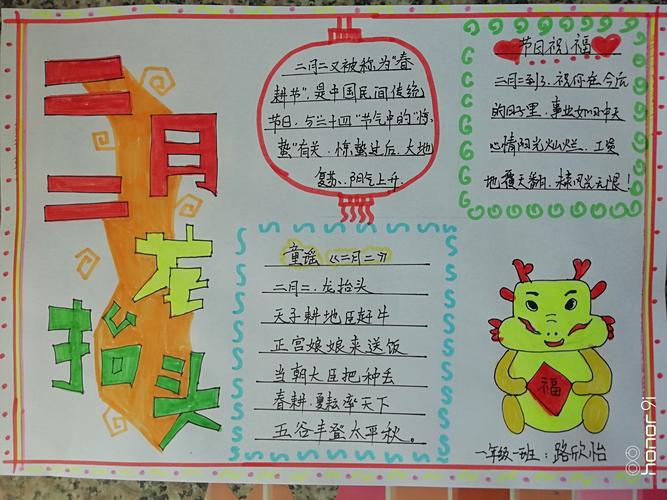 二月二
花抬头
二月二又被称为"春
耕节".是中国民间传统
节日,与二十四"节气中的"惊
蛰"有关.惊蛰过后.大地
复苏、阳气上升.
节日祝福
二月二到了,祝你在今后
的日子里,事业如日中天
心情阳光灿烂.工资
地覆天翻.未来风光无限!
童谣《二月二》
二月二.龙抬头
天子耕地臣赶牛
正宫娘娘来送饭
当朝大臣把种丢
春耕.夏耘率天下
五谷丰登太平秋。
福
一年级一班:路欣怡
honor 9i